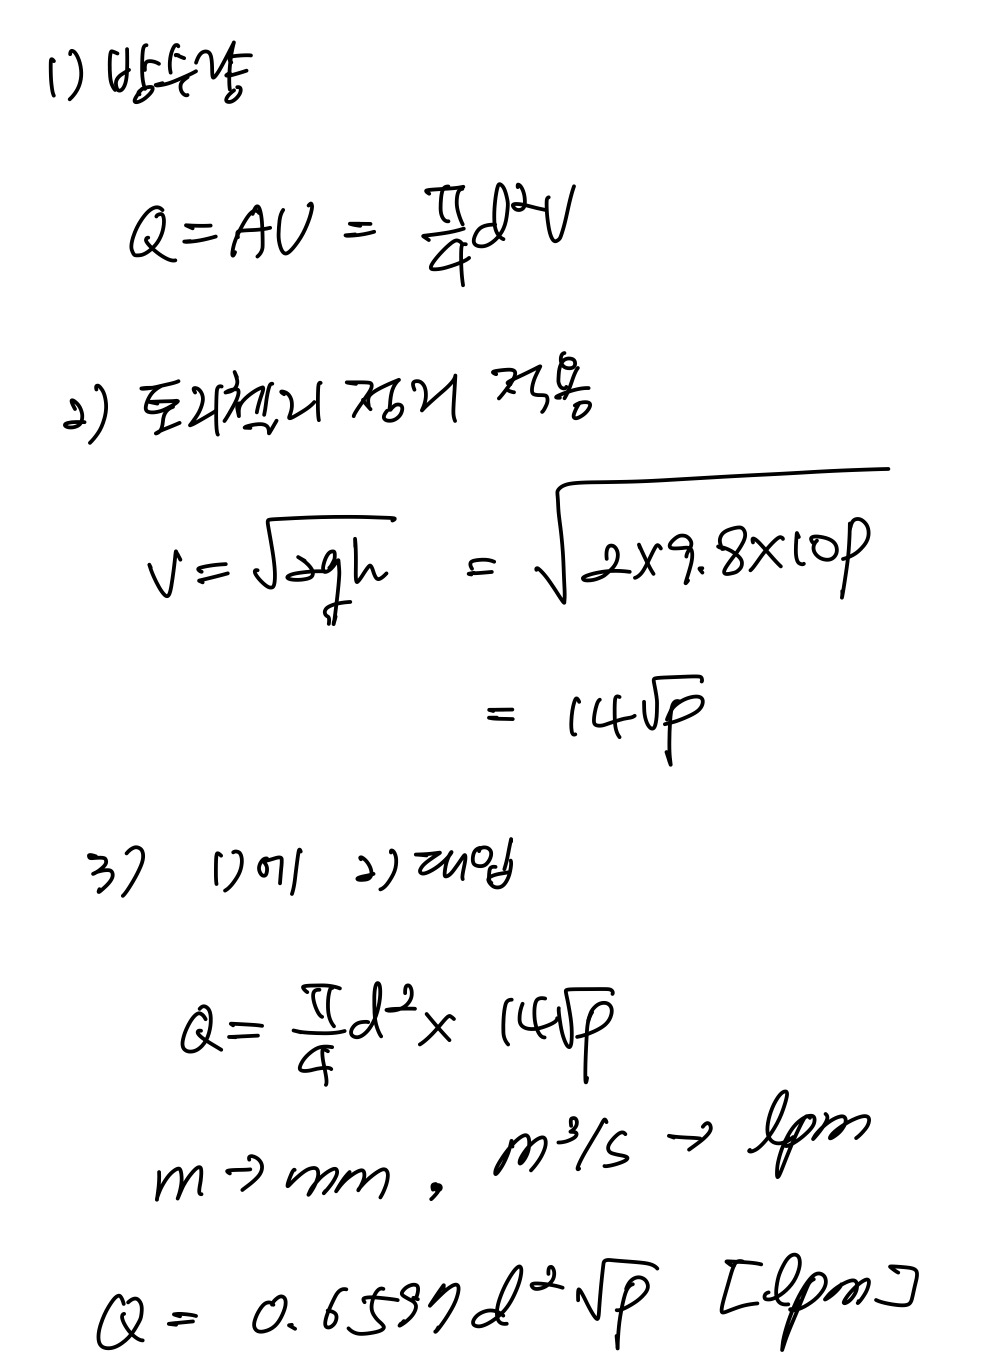 1) 방수량
Q = AV = π/4 d²V
2) 토리첼리 정리 적용
V = √2gh = √2×9.8×10p
= 14√p
3) 1)에 2) 대입
Q = π/4 d² × 14√p
m → mm , m³/s → lpm
Q = 0.6597 d² √p [lpm]